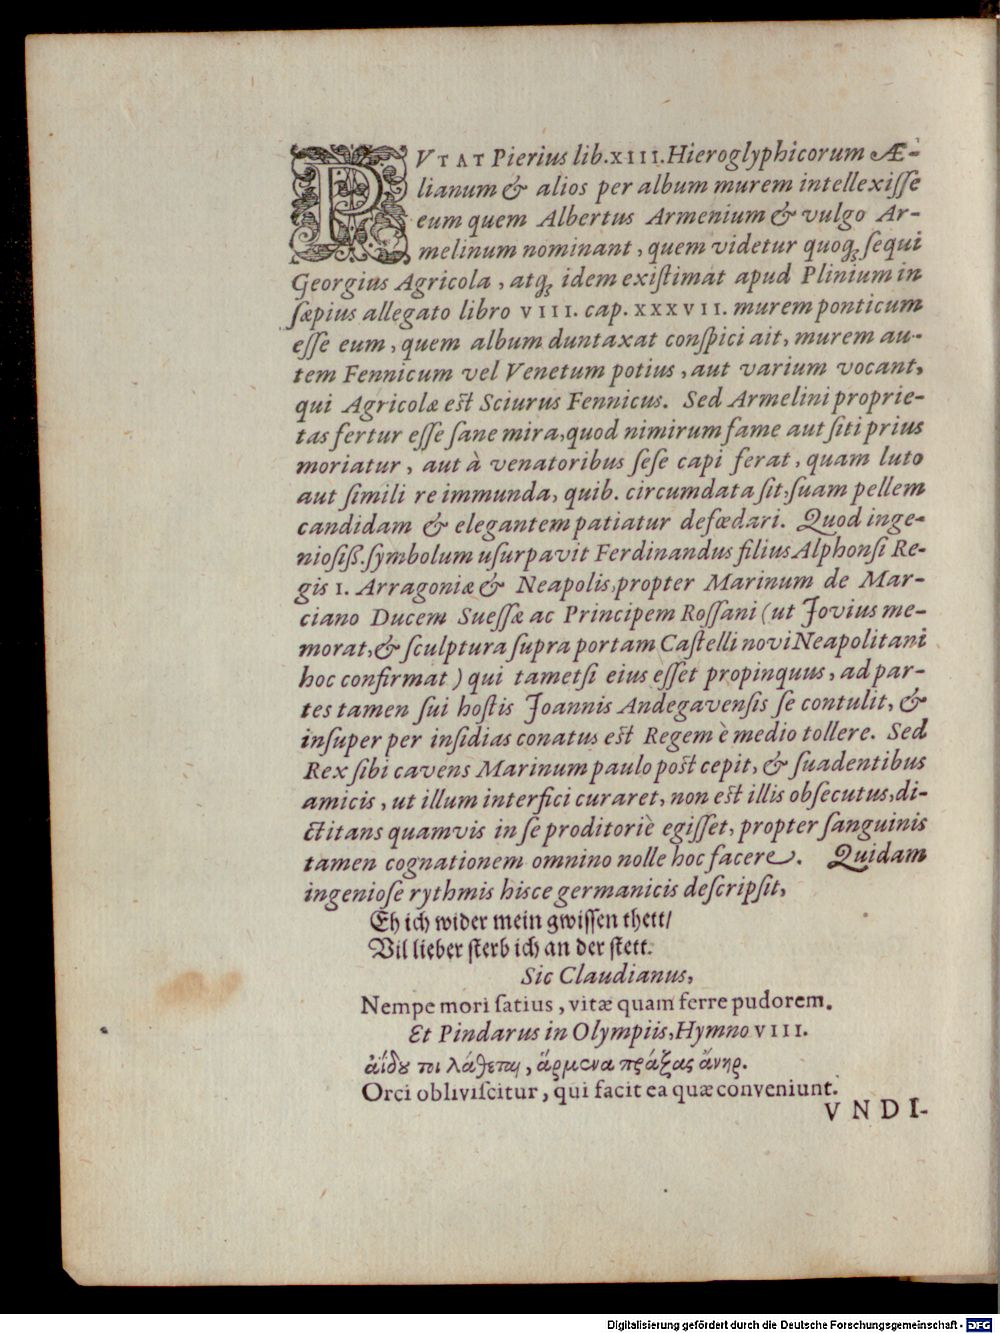 PVTAT Pierius lib. XIII. Hieroglyphicorum Æ-
lianum & alios per album murem intellexiſſe
eum quem Albertus Armenium & vulgo Ar-
melinum nominant, quem videtur quoqꝫ ſequi
Georgius Agricola, atqꝫ idem exiſtimat apud Plinium in
ſæpius allegato libro VIII. cap. XXXVII. murem ponticum
eſſe eum, quem album duntaxat conſpici ait, murem au-
tem Fennicum vel Venetum potius, aut varium vocant,
qui Agricolæ eſt Sciurus Fennicus. Sed Armelini proprie-
tas fertur eſſe ſane mira, quod nimirum fame aut ſiti prius
moriatur, aut à venatoribus ſeſe capi ferat, quam luto
aut ſimili re immunda, quib. circumdata ſit, ſuam pellem
candidam & elegantem patiatur defœdari. Quod inge-
nioſiß. ſymbolum uſurpavit Ferdinandus filius Alphonſi Re-
gis I. Arragoniæ & Neapolis, propter Marinum de Mar-
ciano Ducem Sueſſæ ac Principem Roſſani (ut Jovius me-
morat, & ſculptura ſupra portam Caſtelli novi Neapolitani
hoc confirmat) qui tametſi eius eſſet propinquus, ad par-
tes tamen ſui hoſtis Joannis Andegavenſis ſe contulit, &
inſuper per inſidias conatus eſt Regem è medio tollere. Sed
Rex ſibi cavens Marinum paulo poſt cepit, & ſuadentibus
amicis, ut illum interfici curaret, non eſt illis obſecutus, di-
ctitans quamvis in ſe proditoriè egiſſet, propter ſanguinis
tamen cognationem omnino nolle hoc facere. Quidam
ingenioſe rythmis hisce germanicis deſcripſit,
Eh ich wider mein gwiſſen thett/
Vil lieber ſterb ich an der ſtett.
Sic Claudianus,
Nempe mori ſatius, vitæ quam ferre pudorem.
Et Pindarus in Olympiis, Hymno VIII.
ἀΐδȣ τοι λάθεται, ἅρμενα πράξας ἄνηρ.
Orci obliviſcitur, qui facit ea quæ conveniunt.
VNDI-
Digitalisierung gefördert durch die Deutsche Forschungsgemeinschaft - DFG